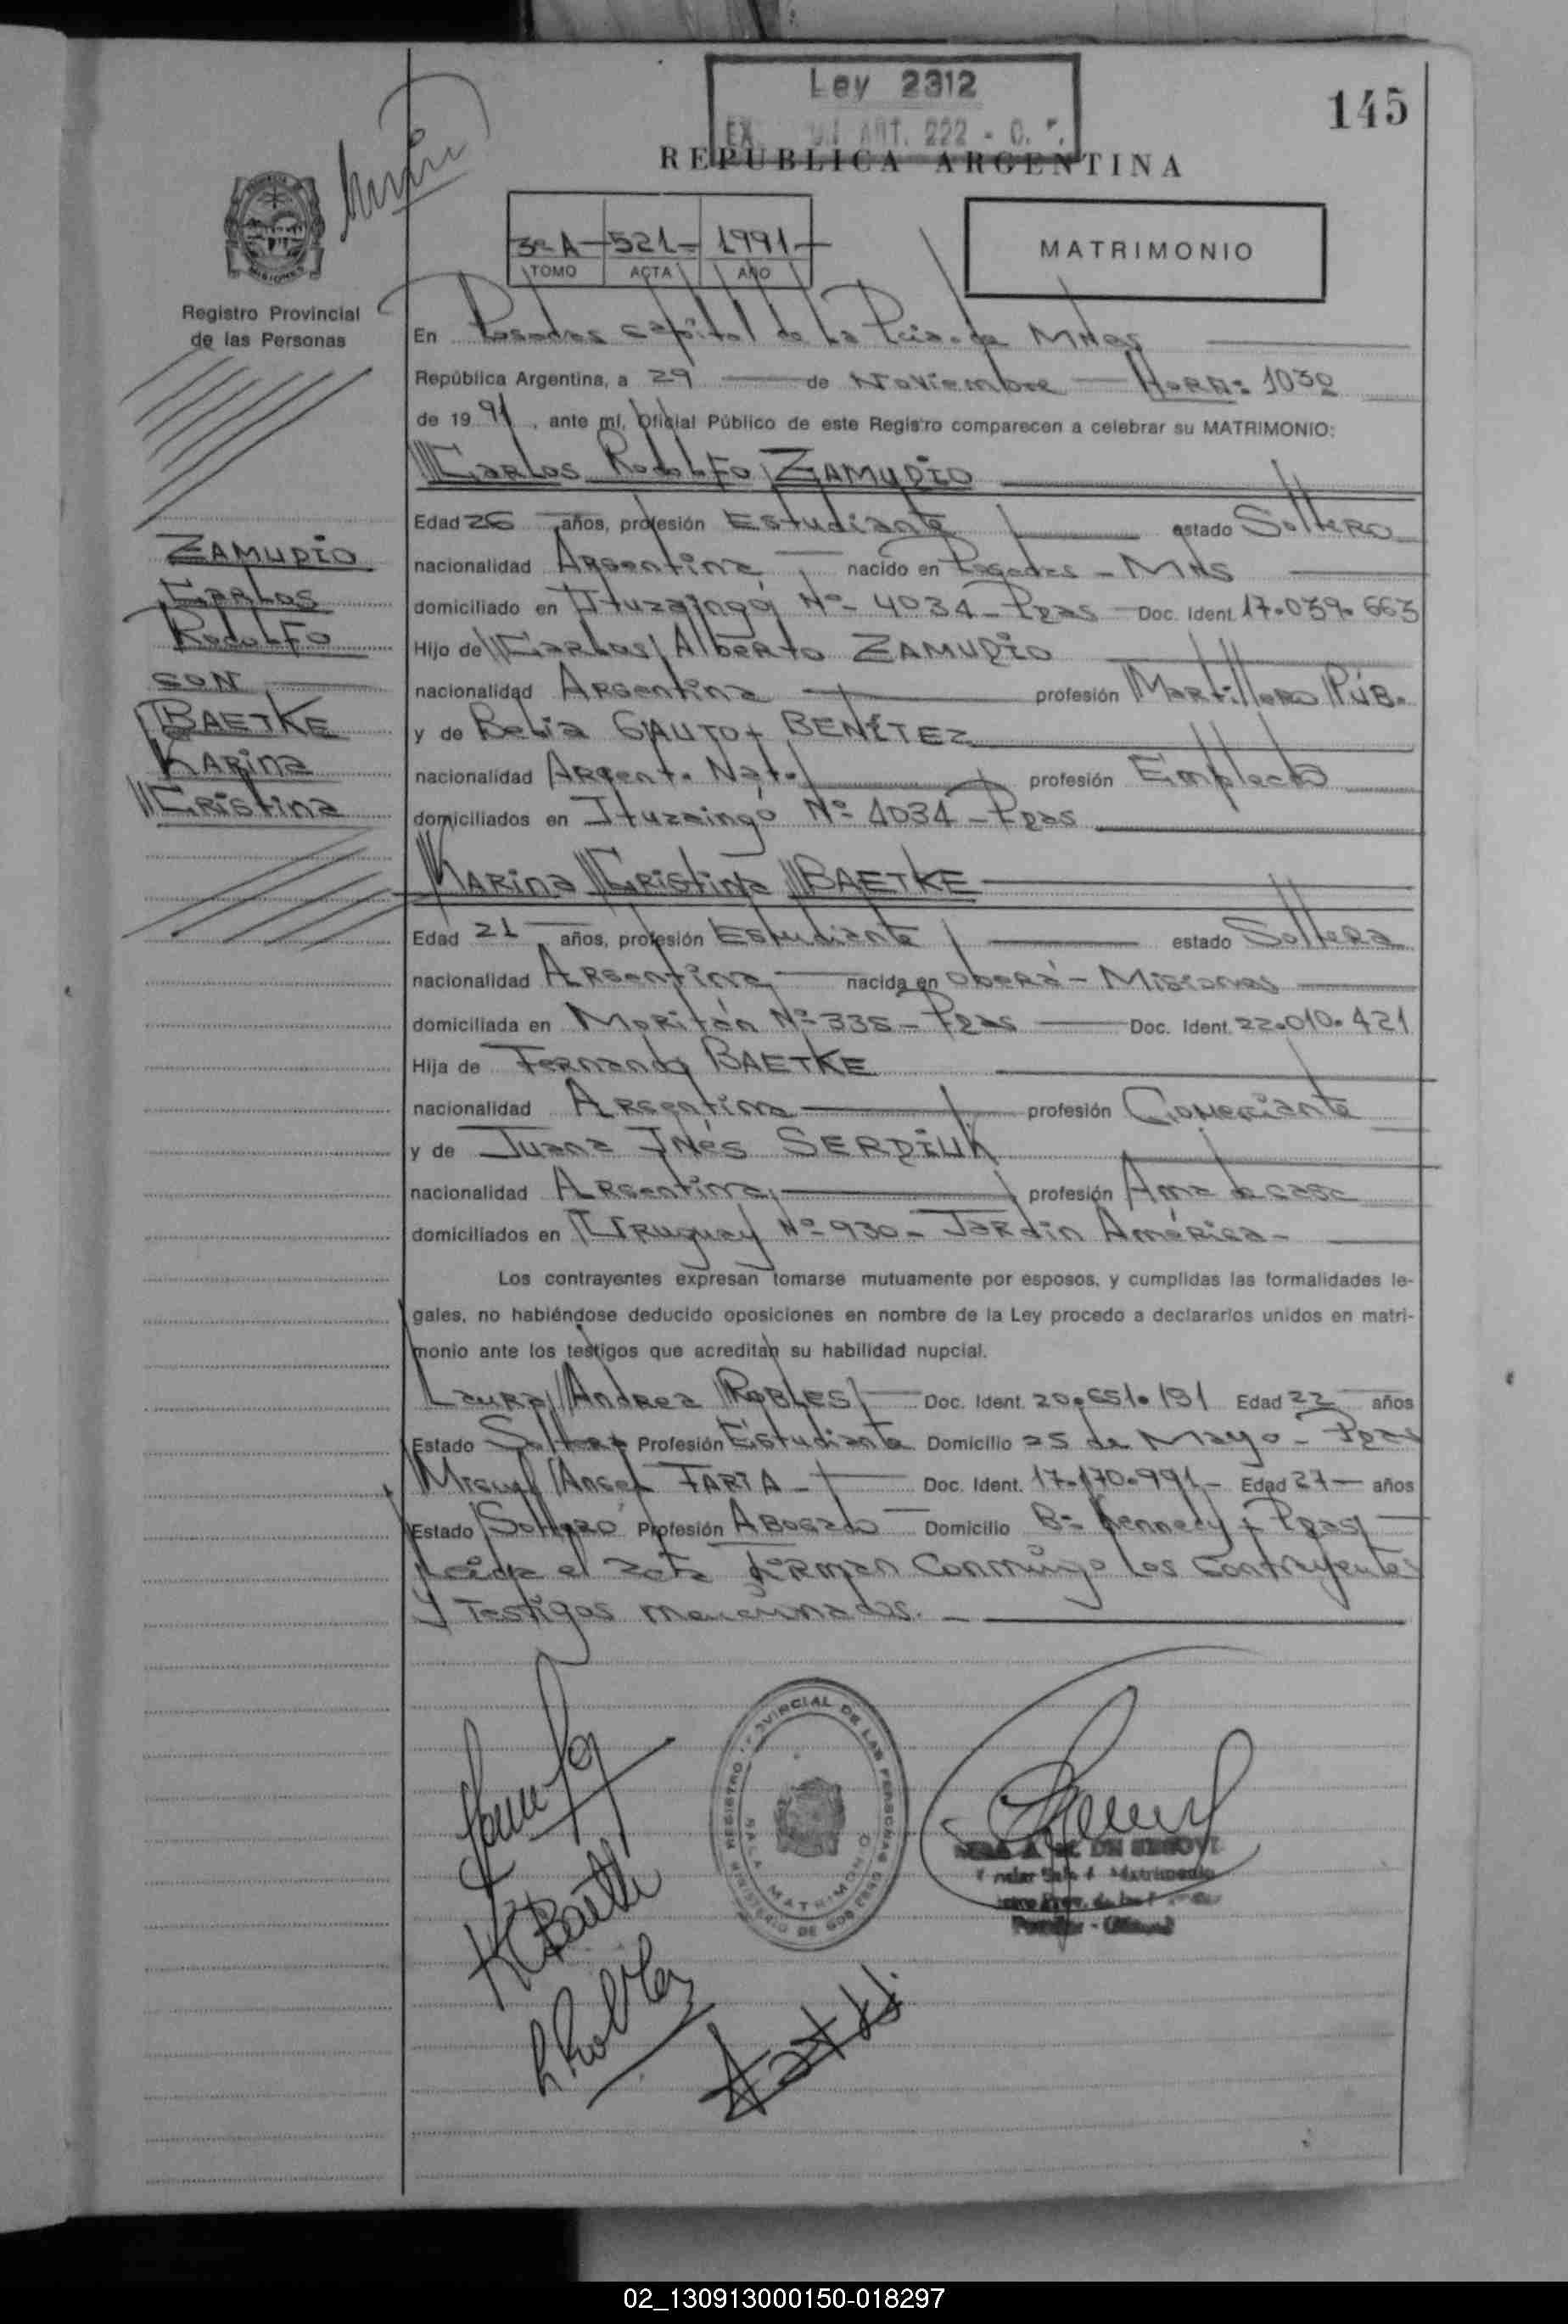 Ley 2312
145
EX. ART. 222 - C.
REPUBLICA ARGENTINA
3º A - 521 - 1991
TOMO ACTA AÑO
MATRIMONIO
Registro Provincial
de las Personas
En Posadas Capital de La Pcia. de Mnes
República Argentina, a 29 de Noviembre - HORA: 1030
de 1991, ante mí, Oficial Público de este Registro comparecen a celebrar su MATRIMONIO:
Carlos Rodolfo ZAMUDIO
Edad 26 años, profesión Estudiante estado Soltero
nacionalidad Argentina nacido en Posadas - MNS
domiciliado en Ituzaingó Nº 4034 - Pdas Doc. Ident. 17.039.663
Hijo de Carlos Alberto ZAMUDIO
nacionalidad Argentina profesión Martillero PúB.
y de Belia GAUTO BENÍTEZ
nacionalidad Argent. Nat. profesión
domiciliados en Ituzaingó Nº 4034 - Pdas
Karina Cristina BAETKE
Edad 21 años, profesión Estudiante estado Soltera
nacionalidad Argentina nacida en Oberá - Misiones
domiciliada en Moritán Nº 335 - Pdas Doc. Ident. 22.010.421
Hija de Fernando BAETKE
nacionalidad Argentina profesión Comerciante
y de Juana Inés SERDIUK
nacionalidad Argentina profesión Ama de casa
domiciliados en Uruguay Nº 930 - Jardín América -
Los contrayentes expresan tomarse mutuamente por esposos, y cumplidas las formalidades le-
gales, no habiéndose deducido oposiciones en nombre de la Ley procedo a declararlos unidos en matri-
monio ante los testigos que acreditan su habilidad nupcial.
Laura Andrea ROBLES Doc. Ident. 20.651.191 Edad 22 años
Estado Soltera Profesión Estudiante Domicilio 25 de Mayo - Pdas
Miguel Angel FARIA - Doc. Ident. 17.170.991 - Edad 27 - años
Estado Soltero Profesión Abogado Domicilio Bº Kennedy - Pdas
Leída el acta firman conmigo los contrayentes
y testigos mencionados. -
ZAMUDIO
Carlos
Rodolfo
CON
BAETKE
Karina
Cristina
REGISTRO PROVINCIAL DE LAS PERSONAS
MINISTERIO DE GOBIERNO
SALA MATRIMONIO
K C Baetke
L Robles
02_130913000150-018297